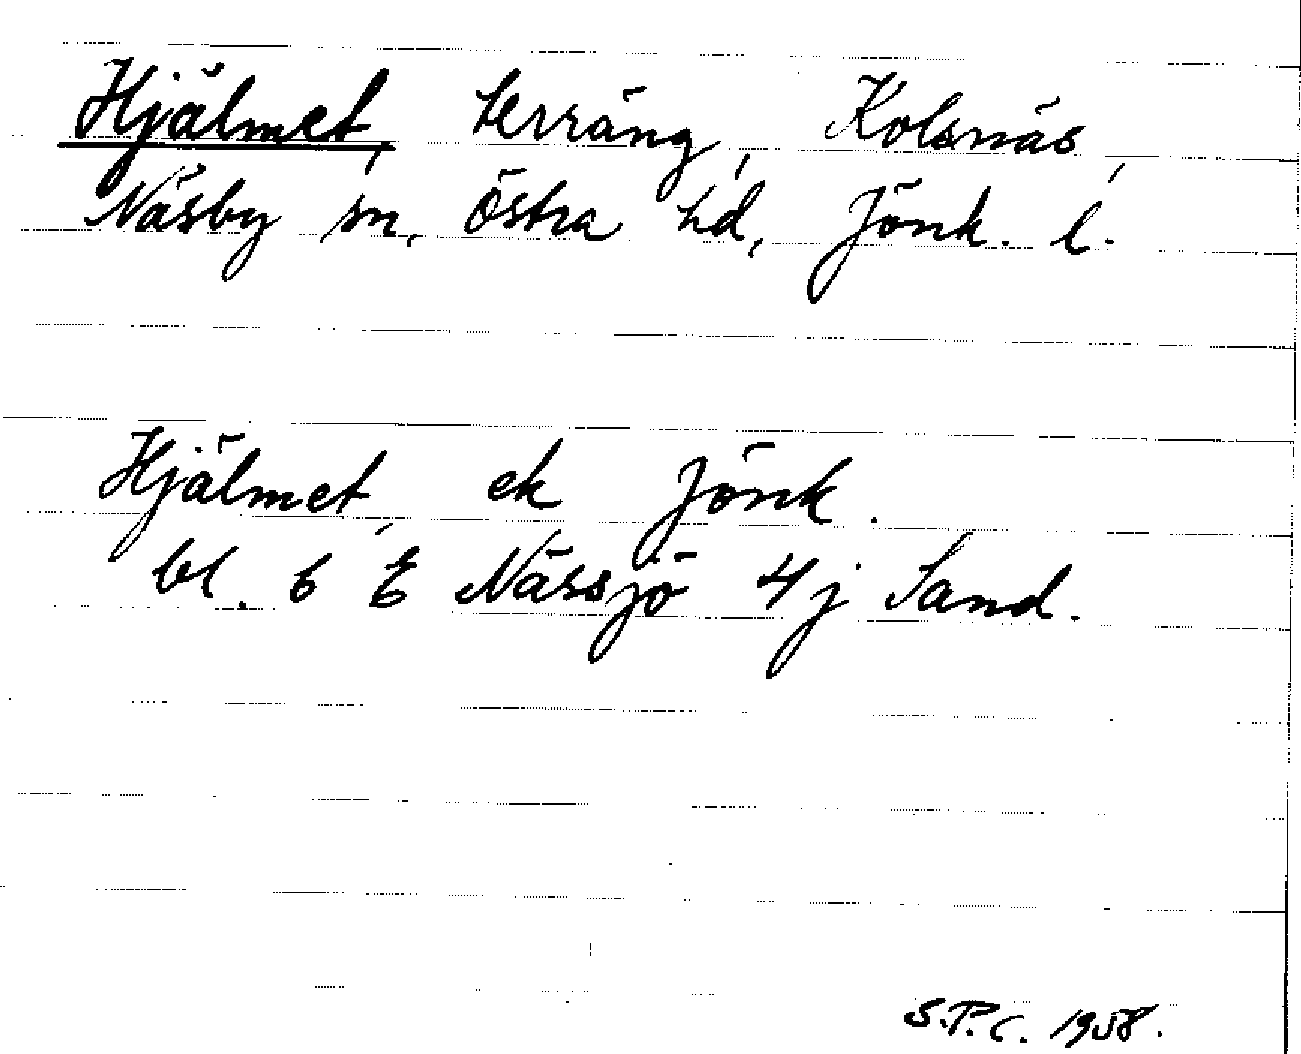 Hjälmet, terräng, Kolsnäs,
Näsby sn, Östra hd, Jönk. l.
Hjälmet, ek Jönk.
bl. 6 E Nässjö 4j Sand.
S.P.C. 1958.